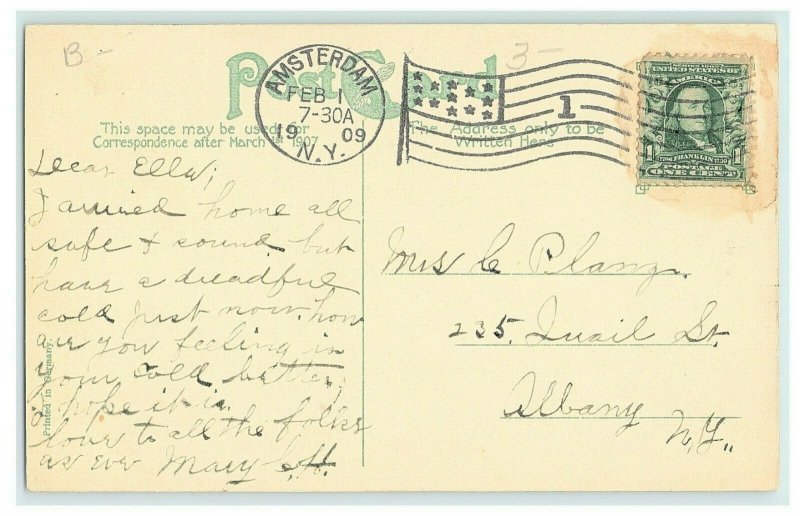 B-
3-
Post Card
AMSTERDAM
FEB 1
7-30A
19 09
N.Y.
1
UNITED STATES OF
AMERICA
1706 FRANKLIN 1790
POSTAGE
1 ONE CENT 1
This space may be used for
Correspondence after March 1st 1907
The Address only to be
Written Here
Dear Ella;
I arrived home all
safe & sound but
have a dreadful
cold just now. how
are you feeling is
your cold better,
I hope it is.
love to all the folks
as ever Mary
Mrs C Planz.
235. Quail St.
Albany
N.Y.
Printed in Germany.